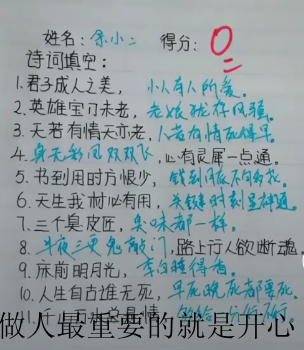 姓名：余小二 得分：0
诗词填空：
1.君子成人之美，小人有人的爱。
2.英雄宝刀未老，老娘犹存风骚。
3.天若有情天亦老，人若有情死得早。
4.身无彩凤双双飞，心有灵犀一点通。
5.书到用时方恨少，钱到月底不够花。
6.天生我材必有用，关键时刻显神通。
7.三个臭皮匠，臭味都一样。
8.半夜三更鬼敲门，路上行人欲断魂。
9.床前明月光，李白睡得香。
10.人生自古谁无死，早死晚死都要死。
做人最重要的就是开心